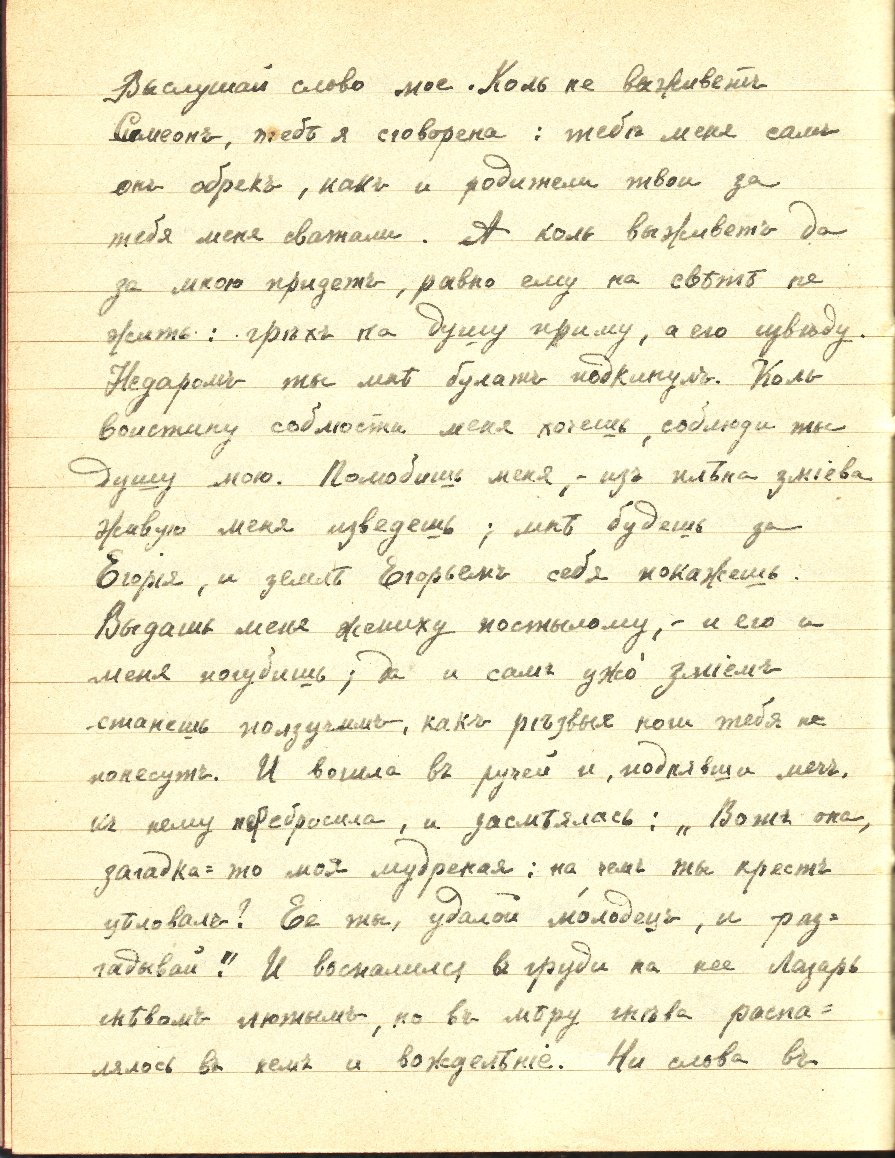 Выслушай слово мое. Коль не выживетъ
Симеонъ, тебѣ я сговорена: тебѣ меня самъ
онъ обрекъ, какъ и родители твои за
тебя меня сватали. А коль выживетъ да
за мною придетъ, равно ему на свѣтѣ не
жить: грѣхъ на душу приму, а его изведу.
Недаромъ ты мнѣ булатъ подкинулъ. Коль
воистину соблюсти меня хочешь, соблюди ты
душу мою. Полюбишь меня,- изъ плѣна зміева
живую меня изведешь; мнѣ будешь за
Егорія, и землѣ Егорьемъ себя покажешь.
Выдашь меня жениху постылому,- и его и
меня погубишь; да и самъ ужо́ зміемъ
станешь ползучимъ, какъ рѣзвыя ноги тебя не
понесутъ. И вошла въ ручей и, поднявши мечъ,
къ нему перебросила, и засмѣялась: „Вотъ она,
загадка=то моя мудреная: на чемъ ты крестъ
цѣловалъ? Ее ты, удалой мо́лодецъ, и раз=
гадывай!" И воспалился въ груди на нее Лазарь
гнѣвомъ лютымъ, но въ мѣру гнѣва распа=
лялось въ немъ и вожделѣніе. Ни слова въ